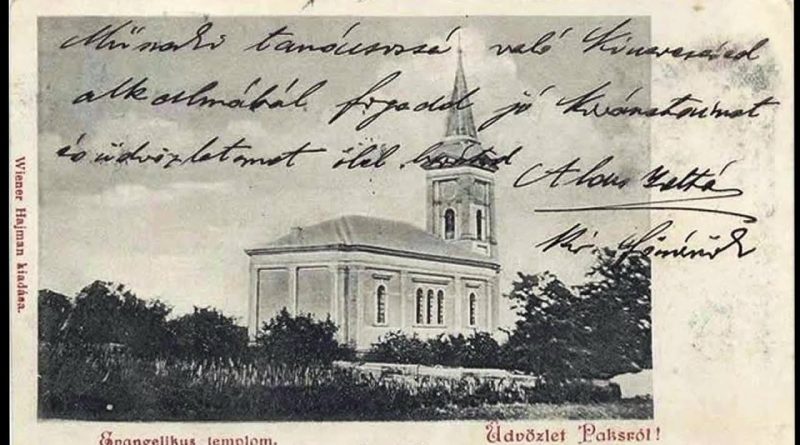 Műszaki tanácsossá való kinevezésed
alkalmából fogadd jó kívánataimat
és üdvözletemet ölel barátod
Zoltán
kir. főmérnök
Wiener Hajman kiadása.
Evangelikus templom.
Üdvözlet Paksról!